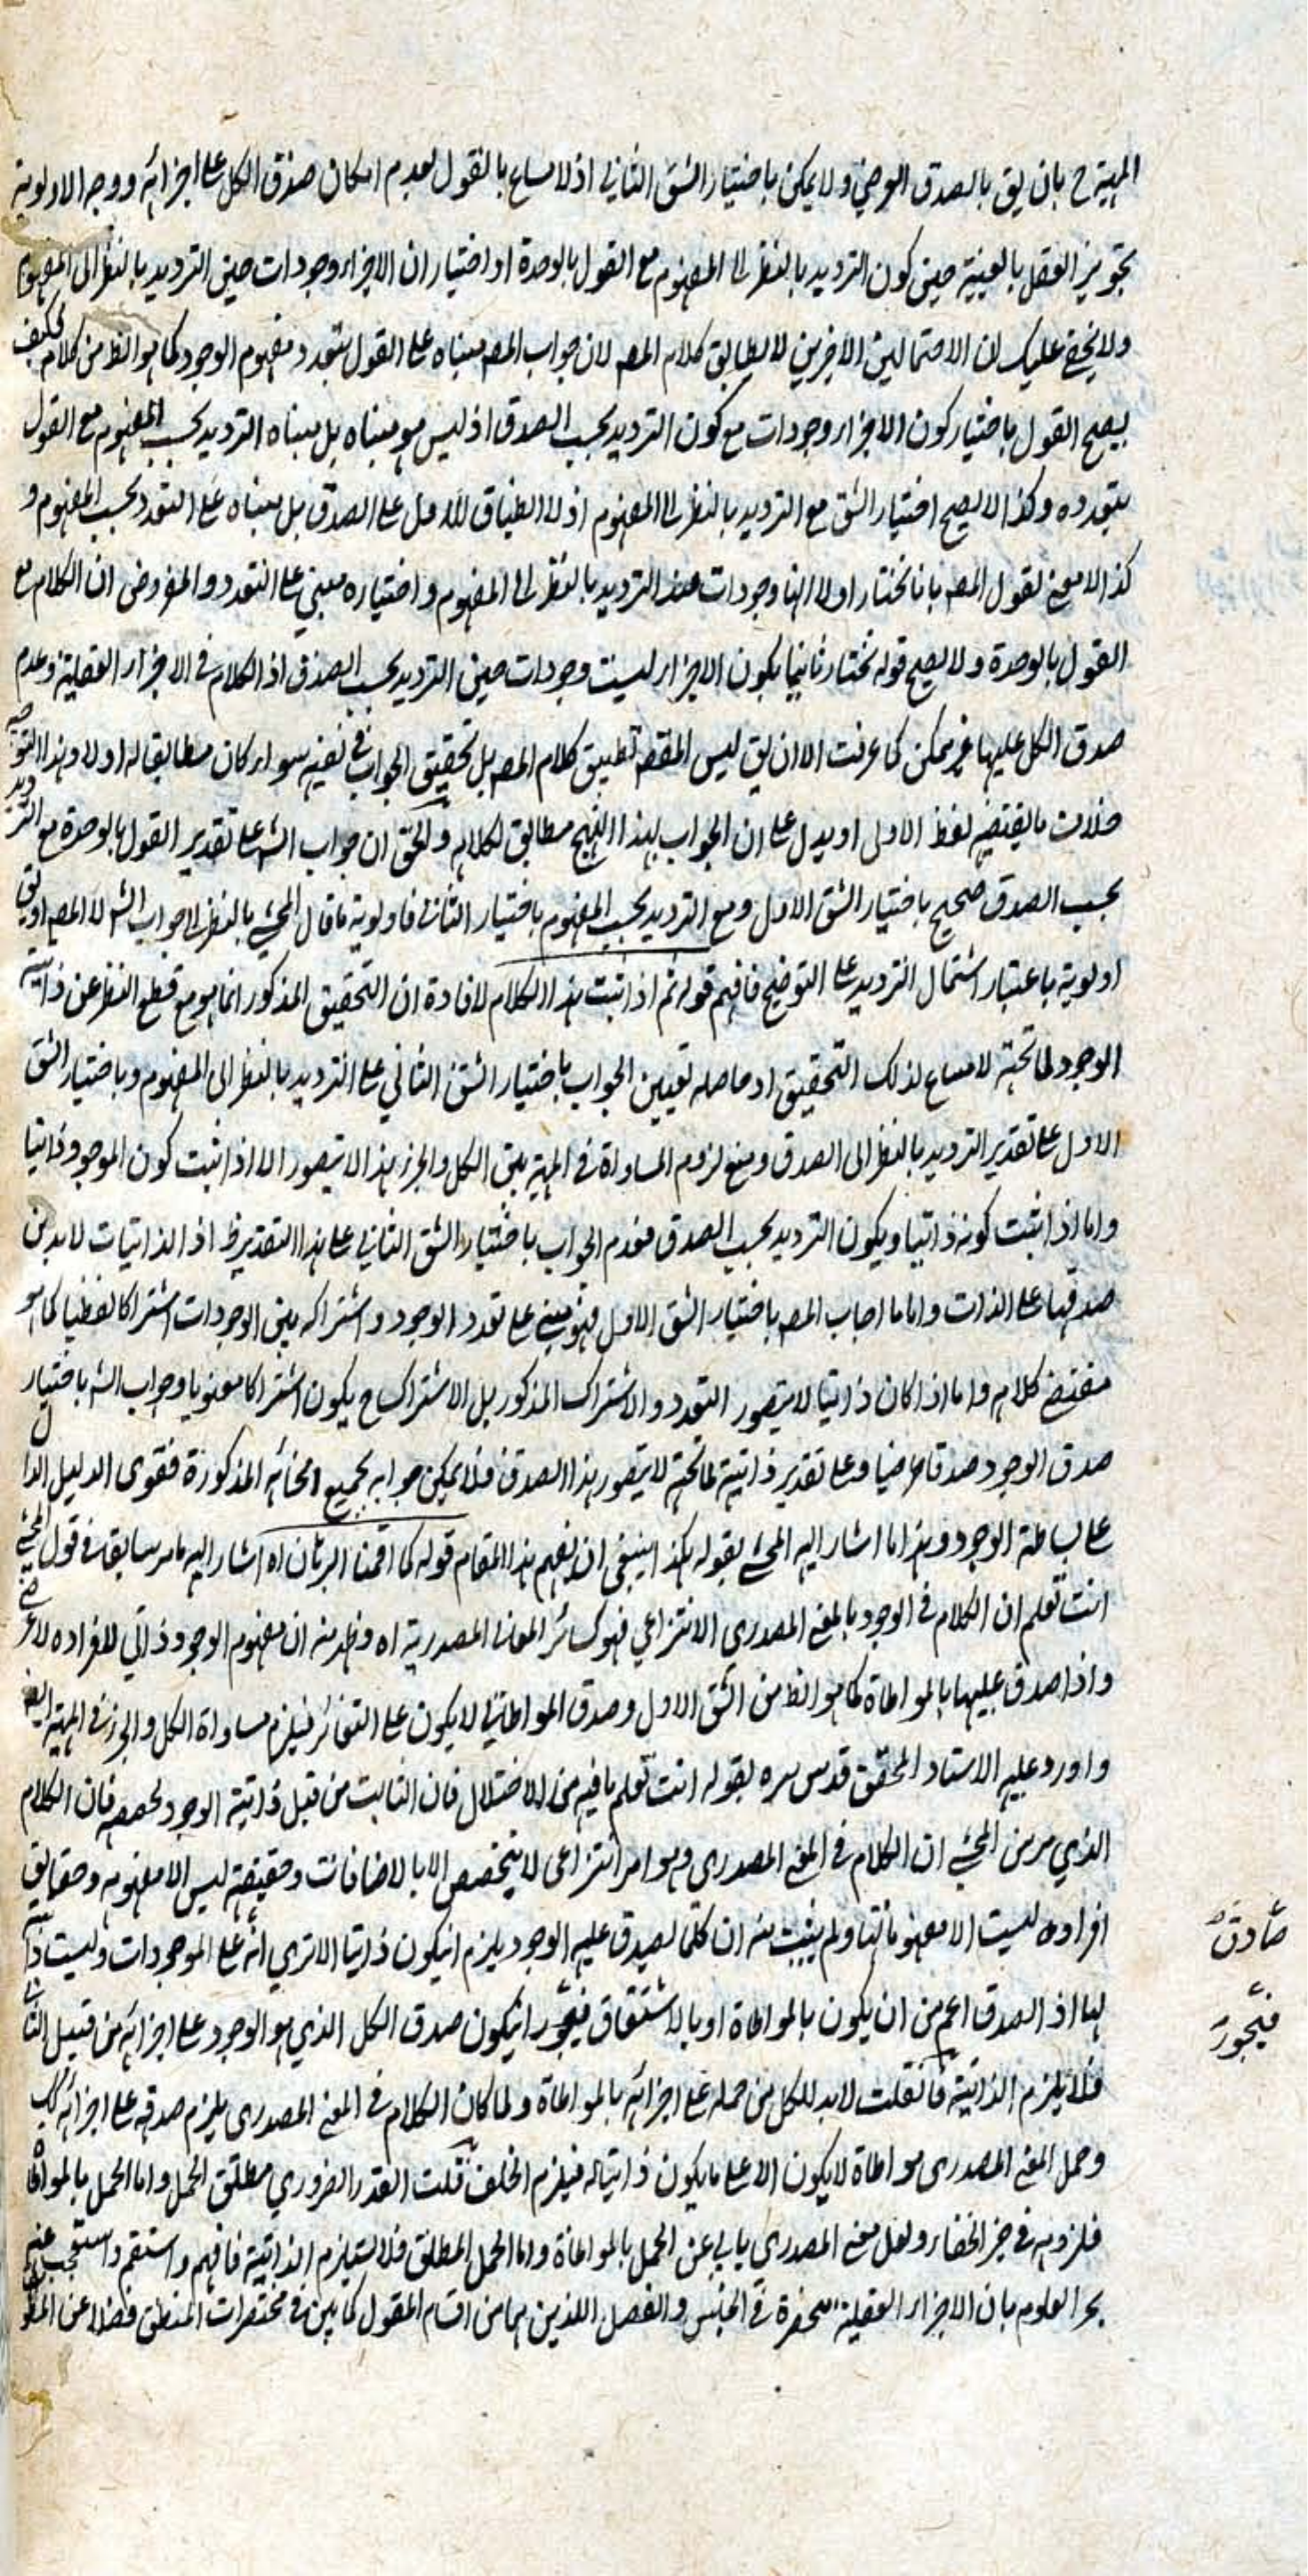 المهية ح بان يق بالصدق العرضي ولا يمكن باختيار الشق الثاني اذ لا مساع بالقول لعدم امكان صدق الكل على اجزائه ووجه الاولوية
تجويز العقل بالعينية حين كون الترديد بالنظر الى المفهوم مع القول بالوحدة او اختيار ان الاجزاء وجودات حين الترديد بالنظر الى المفهوم
ولا يخفى عليك ان الاحتمالين الاخرين لا يطابق كلام المصـ لان جواب المصـ مبناه على القول بتعدد مفهوم الوجود كما هو الظ من كلامه فكيف
يصح القول باختيار كون الاجزاء وجودات مع كون الترديد بحسب الصدق اذ ليس هو مبناه بل مبناه الترديد بحسب المفهوم مع القول
بتعدده وكذا لا يصح اختيار الشق مع الترديد بالنظر الى المفهوم اذ لا انطباق للاول على الصدق بل مبناه على التعدد بحسب المفهوم و
كذا لا معنى لقول المصـ بانا نختار اولا انها وجودات عند الترديد بالنظر الى المفهوم واختياره مبني على التعدد والمفروض ان الكلام مع
القول بالوحدة ولا يصح قوله نختار ثانيا بكون الاجزاء ليست وجودات حين الترديد بحسب الصدق اذ الكلام في الاجزاء العقلية وعدم
صدق الكل عليها غير ممكن كما عرفت الا ان يق ليس المقصـ تطبيق كلام المصـ بل تحقيق الجواب في نفسه سواء كان مطابقا له اولا وهذا التوجيه
خلاف ما يقتضيه لفظ الاولى او يدل على ان الجواب بهذا النهج مطابق لكلامه والحق ان جواب الشـ على تقدير القول بالوحدة مع الترديد
بحسب الصدق صحيح باختيار الشق الاول ومع الترديد بحسب المفهوم باختيار الثاني فاولوية ما قال المحشي بالنظر الى جواب الشـ لا المصـ او يق
اولوية باعتبار اشتمال الترديد على التوضيح فافهم قوله ثم اذا ثبت هذا الكلام لافادة ان التحقيق المذكور انما هو مع قطع النظر عن ذاتية
الوجود لما تحته لا مساع لذلك التحقيق اذ حاصله تعيين الجواب باختيار الشق الثاني على الترديد بالنظر الى المفهوم وباختيار الشق
الاول على تقدير الترديد بالنظر الى الصدق ومنع لزوم المساواة في المهية بين الكل والجزء هذا لا يتصور الا اذا ثبت كون الموجود ذاتيا
واما اذا ثبت كونه ذاتيا ويكون الترديد بحسب الصدق فعدم الجواب باختيار الشق الثاني على هذا التقدير ظ اذ الذاتيات لا بد من
صدقها على الذات واما ما اجاب المصـ باختيار الشق الاول فهو مبني على تعدد الوجود واشتراكه بين الوجودات اشتراكا لفظيا كما هو
مقتضى كلامه واما اذا كان ذاتيا لا يتصور التعدد والاشتراك المذكور بل الاشتراك ح يكون اشتراكا معنويا وجواب الشـ باختيار
صدق الوجود صدقا عرضيا وعلى تقدير ذاتية لما تحته لا يتصور هذا الصدق فلا يمكن جوابه بجميع انحائه المذكورة فقوى الدليل الدال
على بساطة الوجود وهذا ما اشار اليه المحشي بقوله هكذا ينبغي ان يفهم هذا المقام قوله كما اقمنا البرهان اه اشار اليه ما مر سابقا في قول المحشي
انت تعلم ان الكلام في الوجود بالمعنى المصدري الانتزاعي فهو كسائر المعاني المصدرية اه وظهر منه ان مفهوم الوجود ذاتي لافراده لا عرضي
واذا صدق عليها بالمواطاة كما هو الظ من الشق الاول وصدق المواطاتي لا يكون على التغائر فيلزم مساواة الكل والجزء في المهية ايضا
واورد عليه الاستاد المحقق قدس سره بقوله انت تعلم ما فيه من الاختلال فان الثابت من قبل ذاتية الوجود لحصصه فان الكلام
الذي مر من المحشي ان الكلام في المعنى المصدري وهو امر انتزاعي لا يتخصص الا بالاضافات وحقيقته ليس الا مفهومه وحقايق
افراده ليست الا مفهوماتها ولم يثبت منه ان كلما يصدق عليه الوجود يلزم ان يكون ذاتيا الا ترى انه على الموجودات وليست ذاتية
لها اذ الصدق اعم من ان يكون بالمواطاة او بالاشتقاق فيجوز ان يكون صدق الكل الذي هو الوجود على اجزائه من قبيل الثاني
فلا يلزم الذاتية فان قلت لا بد للكل من حمله على اجزائه بالمواطاة ولما كان الكلام في المعنى المصدري يلزم صدقه على اجزائه كك
وحمل المعنى المصدري مواطاة لا يكون الا على ما يكون ذاتيا له فيلزم الخلف قلت القدر الضروري مطلق الحمل واما الحمل بالمواطاة
فلزومه في حيز الخفاء ولعل معنى المصدري يابي عن الحمل بالمواطاة واما الحمل المطلق فلا يستلزم الذاتية فافهم واستقم واستعجب عنه
بحر العلوم بان الاجزاء العقلية منحصرة في الجنس والفصل اللذين هما من اقسام المقول كما بين في مختصرات المنطق فضلا عن
صادق
فيجوز